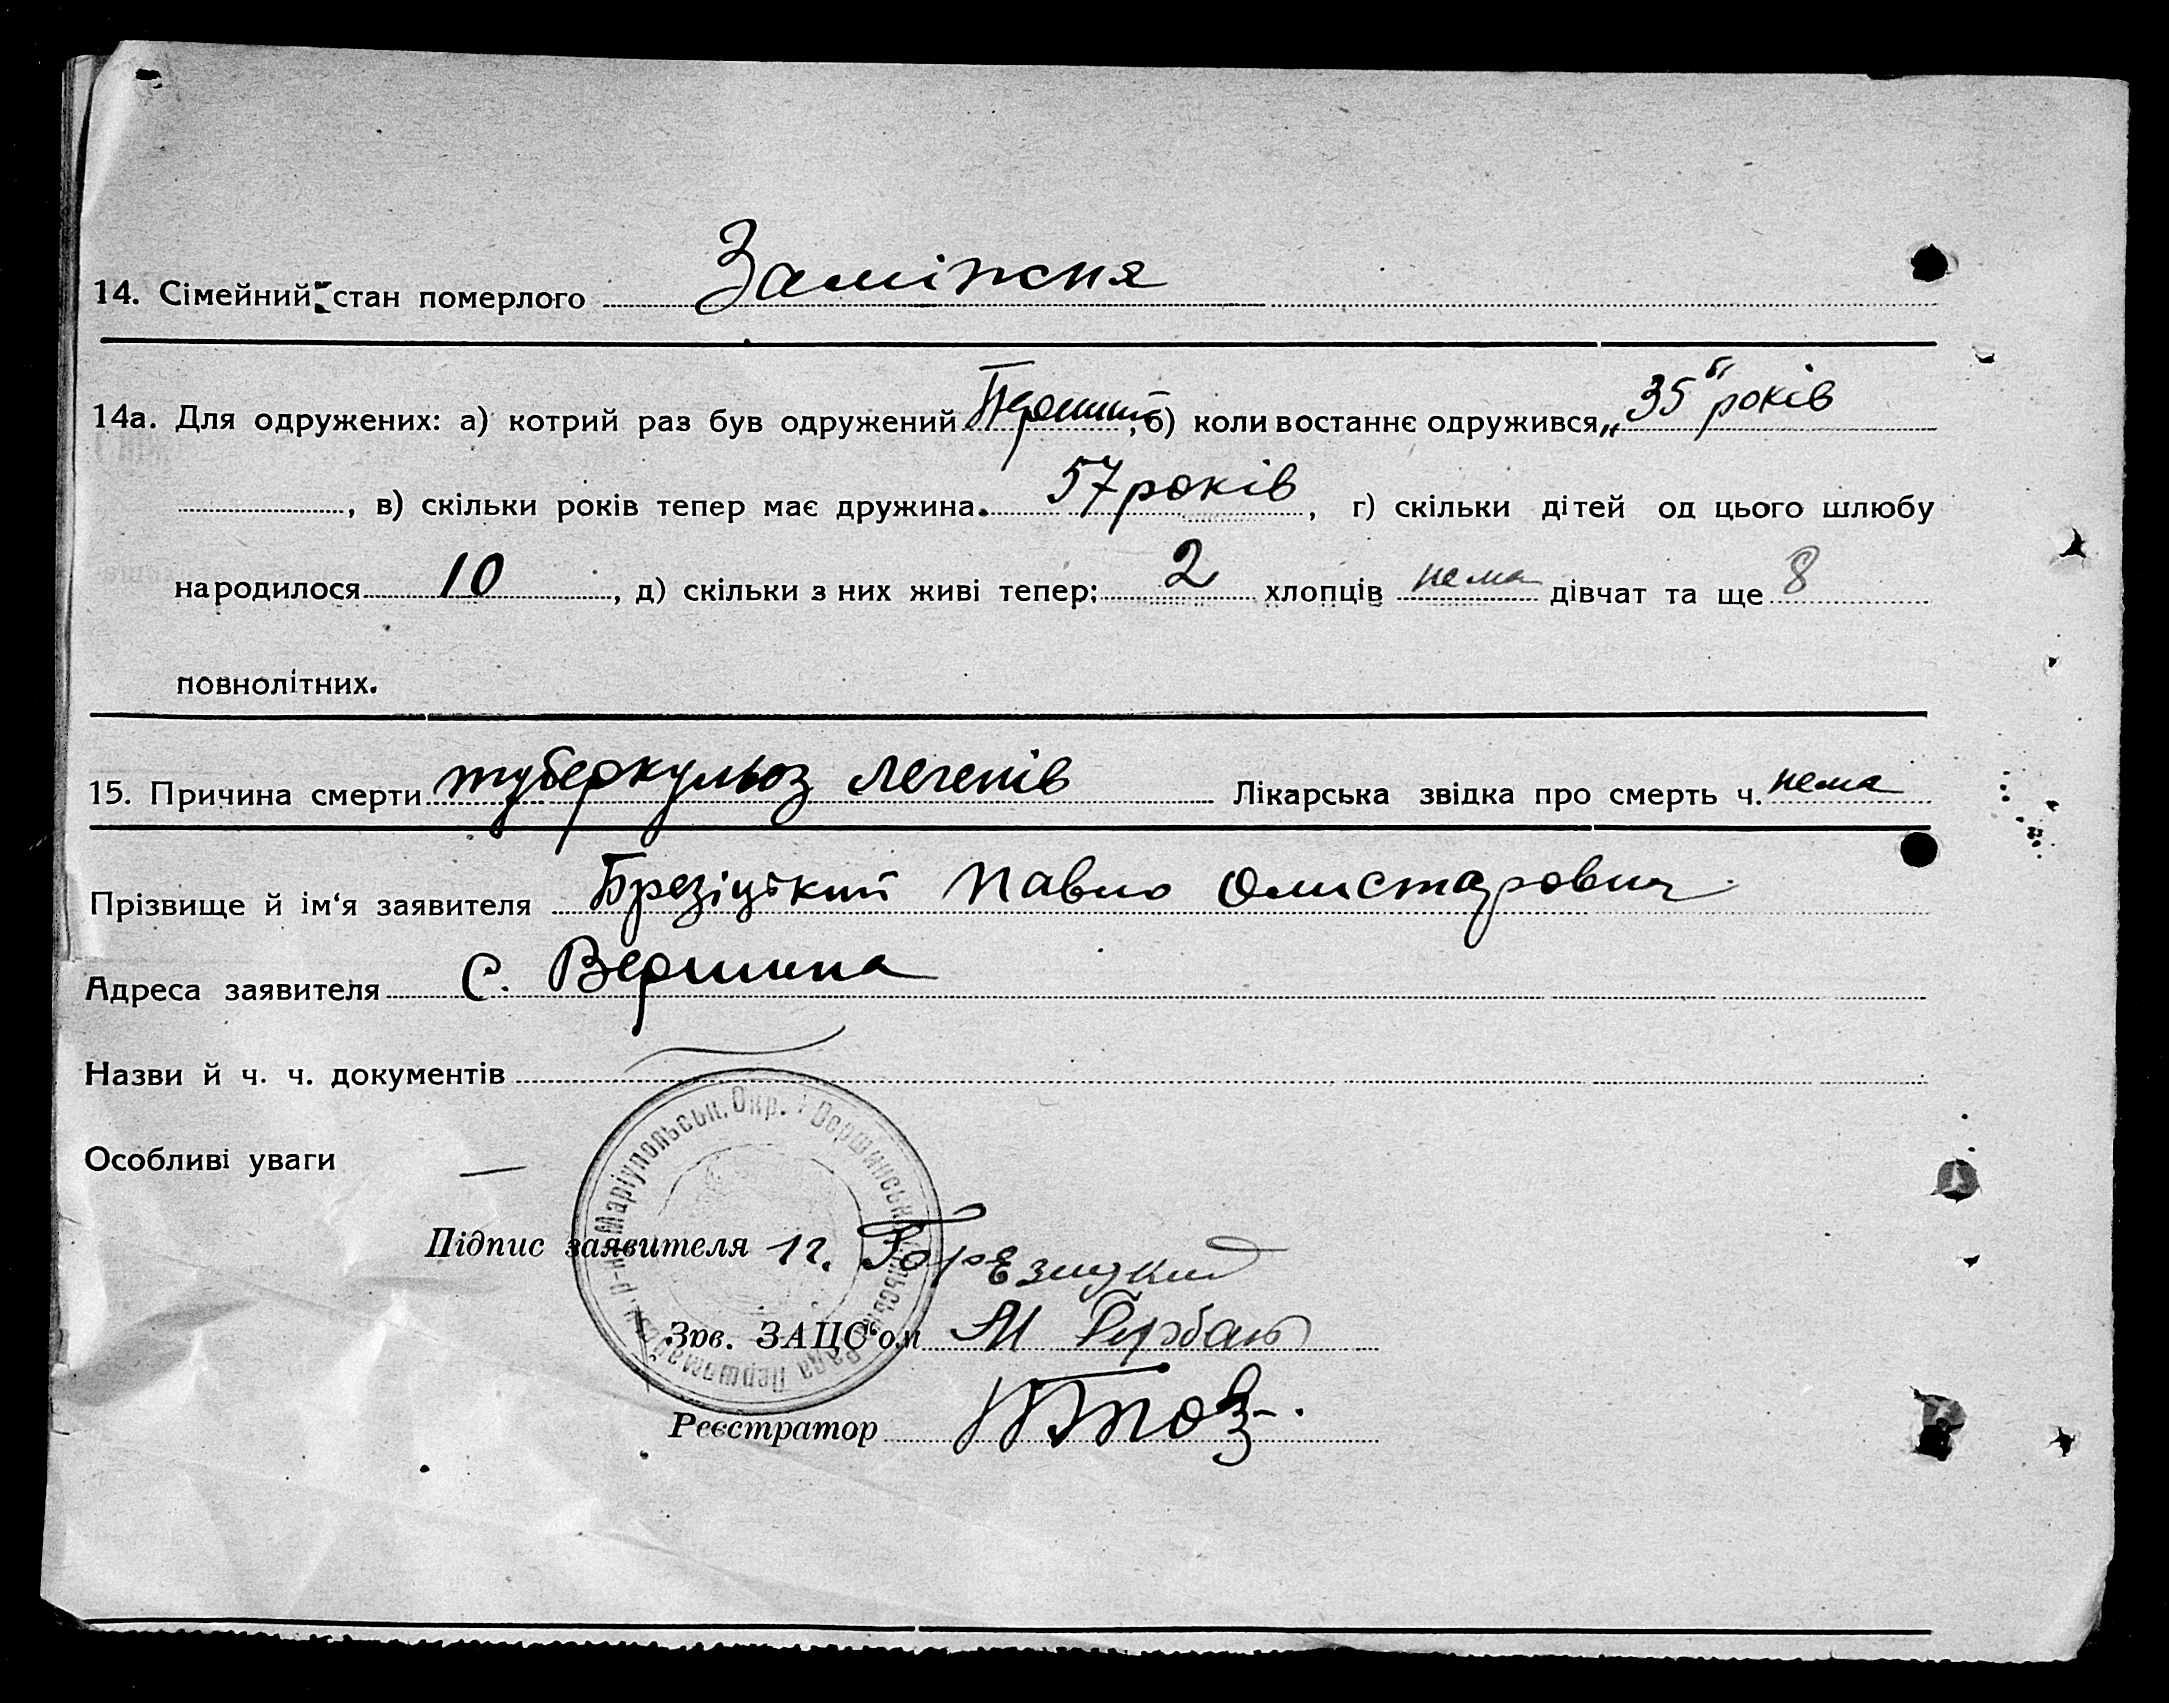 14. Сімейний стан померлого Заміжня
14а. Для одружених: а) котрий раз був одружений Перший, б) коли востаннє одружився „ 35 " років
, в) скільки років тепер має дружина. 57 років, г) скільки дітей од цього шлюбу
народилося 10, д) скільки з них живі тепер: 2 хлопців нема дівчат та ще 8
повнолітних.
15. Причина смерти туберкульоз легенів Лікарська звідка про смерть ч. нема
Прізвище й ім'я заявителя Брезіцький Павло
Адреса заявителя с. Вершина
Назви й ч. ч. документів
Особливі уваги —
Маріупольськ. Окр. Вершинська Сільська Рада Першотрав. р-н
Підпис заявителя
Зав. ЗАЦС'ом М
Реєстратор